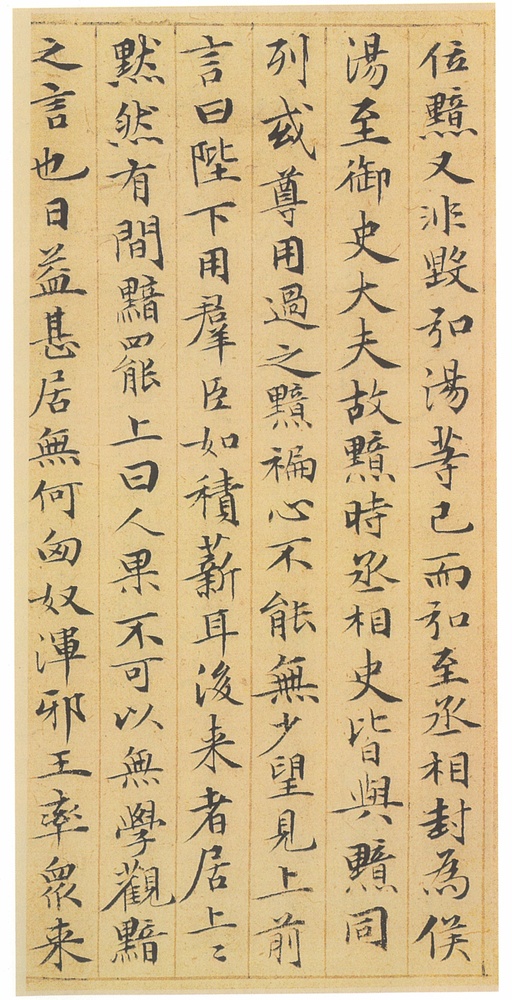 位黯又非毀弘湯等已而弘至丞相封為侯
湯至御史大夫故黯時丞相史皆與黯同
列或尊用過之黯褊心不能無少望見上前
言曰陛下用羣臣如積薪耳後来者居上〻
黙然有間黯罷上曰人果不可以無學觀黯
之言也日益甚居無何匈奴渾邪王率衆来